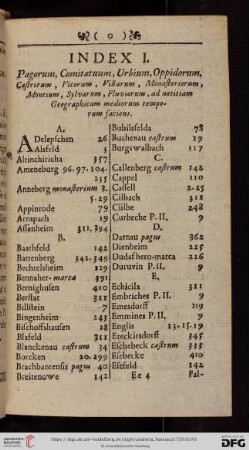 ( o )
INDEX I.
Pagorum, Comitatuum, Urbium, Oppidorum,
Castrorum, Vicorum, Villarum, Monasteriorum,
Montium, Sylvarum, Fluviorum, ad notitiam
Geographicam mediorum tempo-
rum faciens.
A.
ADelepschen 26
Alsfeld 3
Altinchiricha 357
Ameneburg 96. 97. 104.
235
Anneberg monasterium 3.
5. 29
Appinrode 79
Arnspach 19
Assenheim 311. 394
B.
Baathfeld 142
Battenberg 342. 349
Bechtelsheim 129
Bennahet-marca 391
Bernighusen 410
Berstat 311
Billstein 7
Bingenheim 243
Bischoffshausen 28
Blafeld 311
Blanckenau castrum 34
Borcken 20. 299
Brachbantensis pagus 40
Breitenowe 142
Bubilsfelda 78
Buchenau castrum 19
Burgswalbach 117
C.
Callenberg castrum 142
Cappel 110
Cassell 2. 25
Cilbach 312
Cülbe 248
Curbeche P. II. 9
D.
Darnau pagus 362
Dienheim 225
Dudafhero-marca 226
Duruvin P. II. 9
E.
Echicila 311
Embriches P. II. 9
Emesdorff 219
Emmines P. II. 9
Englis 13. 15. 19
Erzckirsdorff 345
Eschebeck castrum 335
Esebecke 410
Esefeld 142
Ee 4
Fal-